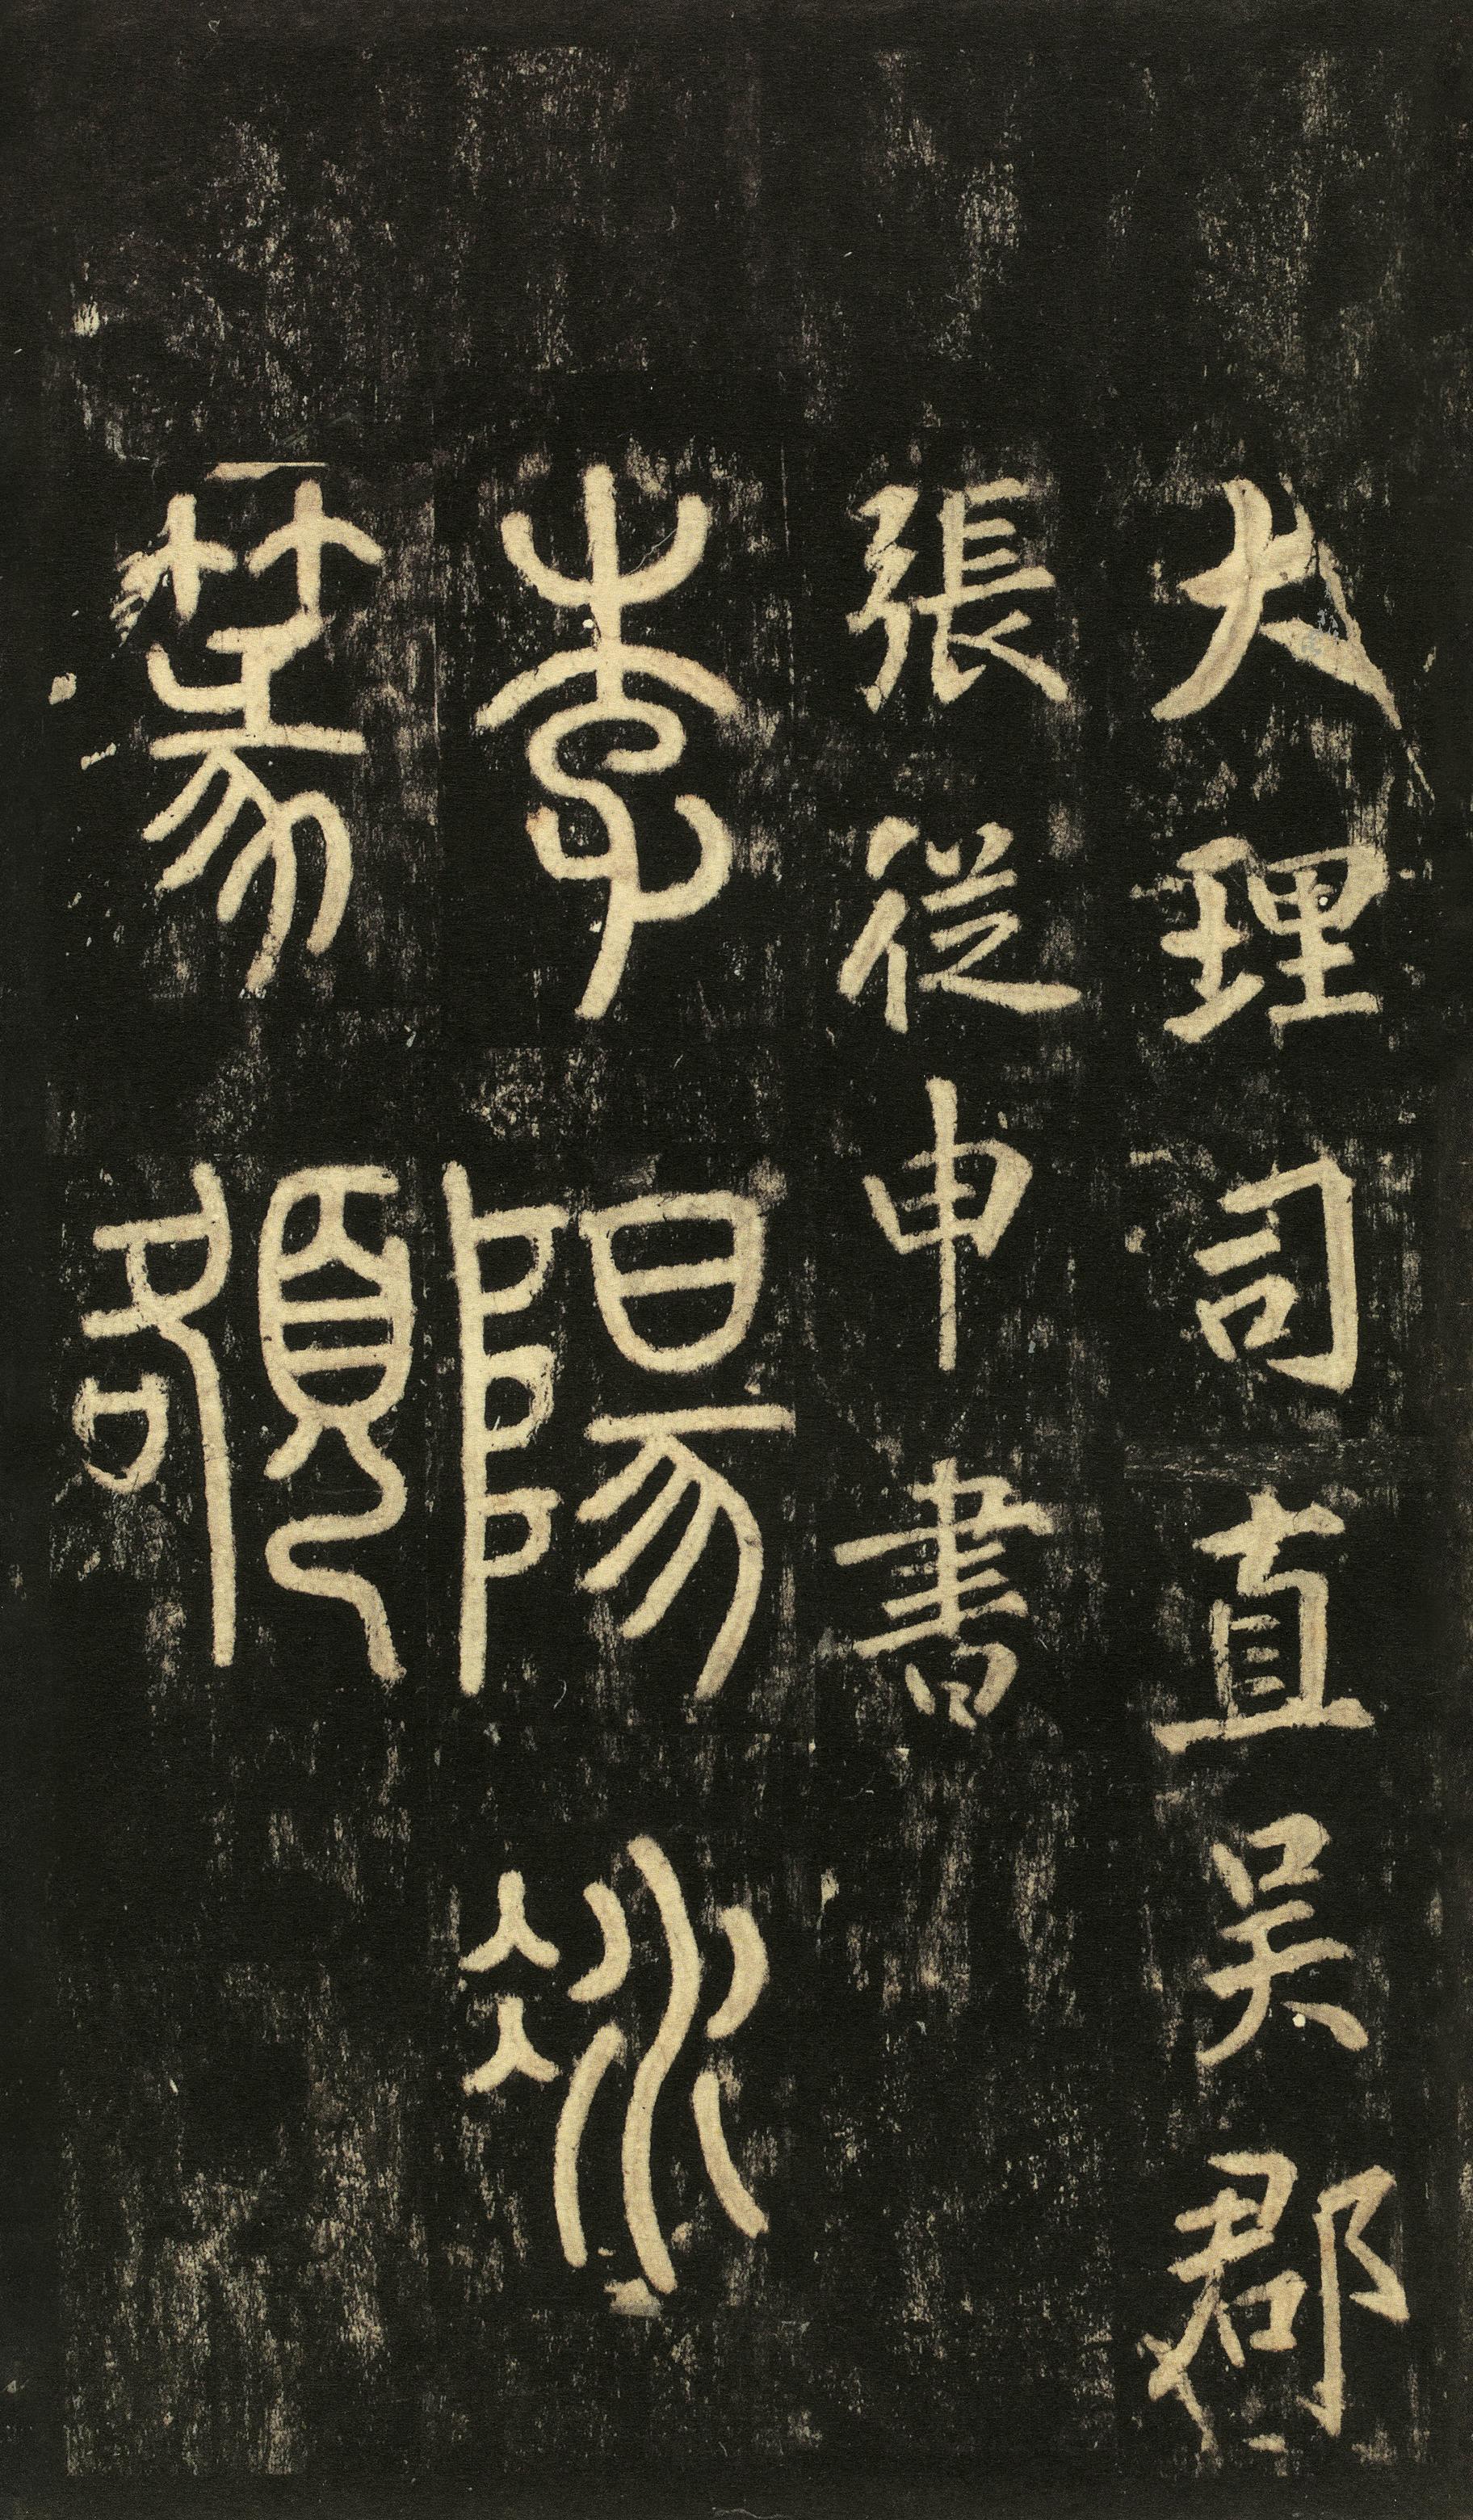 大理司直吳郡
張從申書
李陽冰
篆額